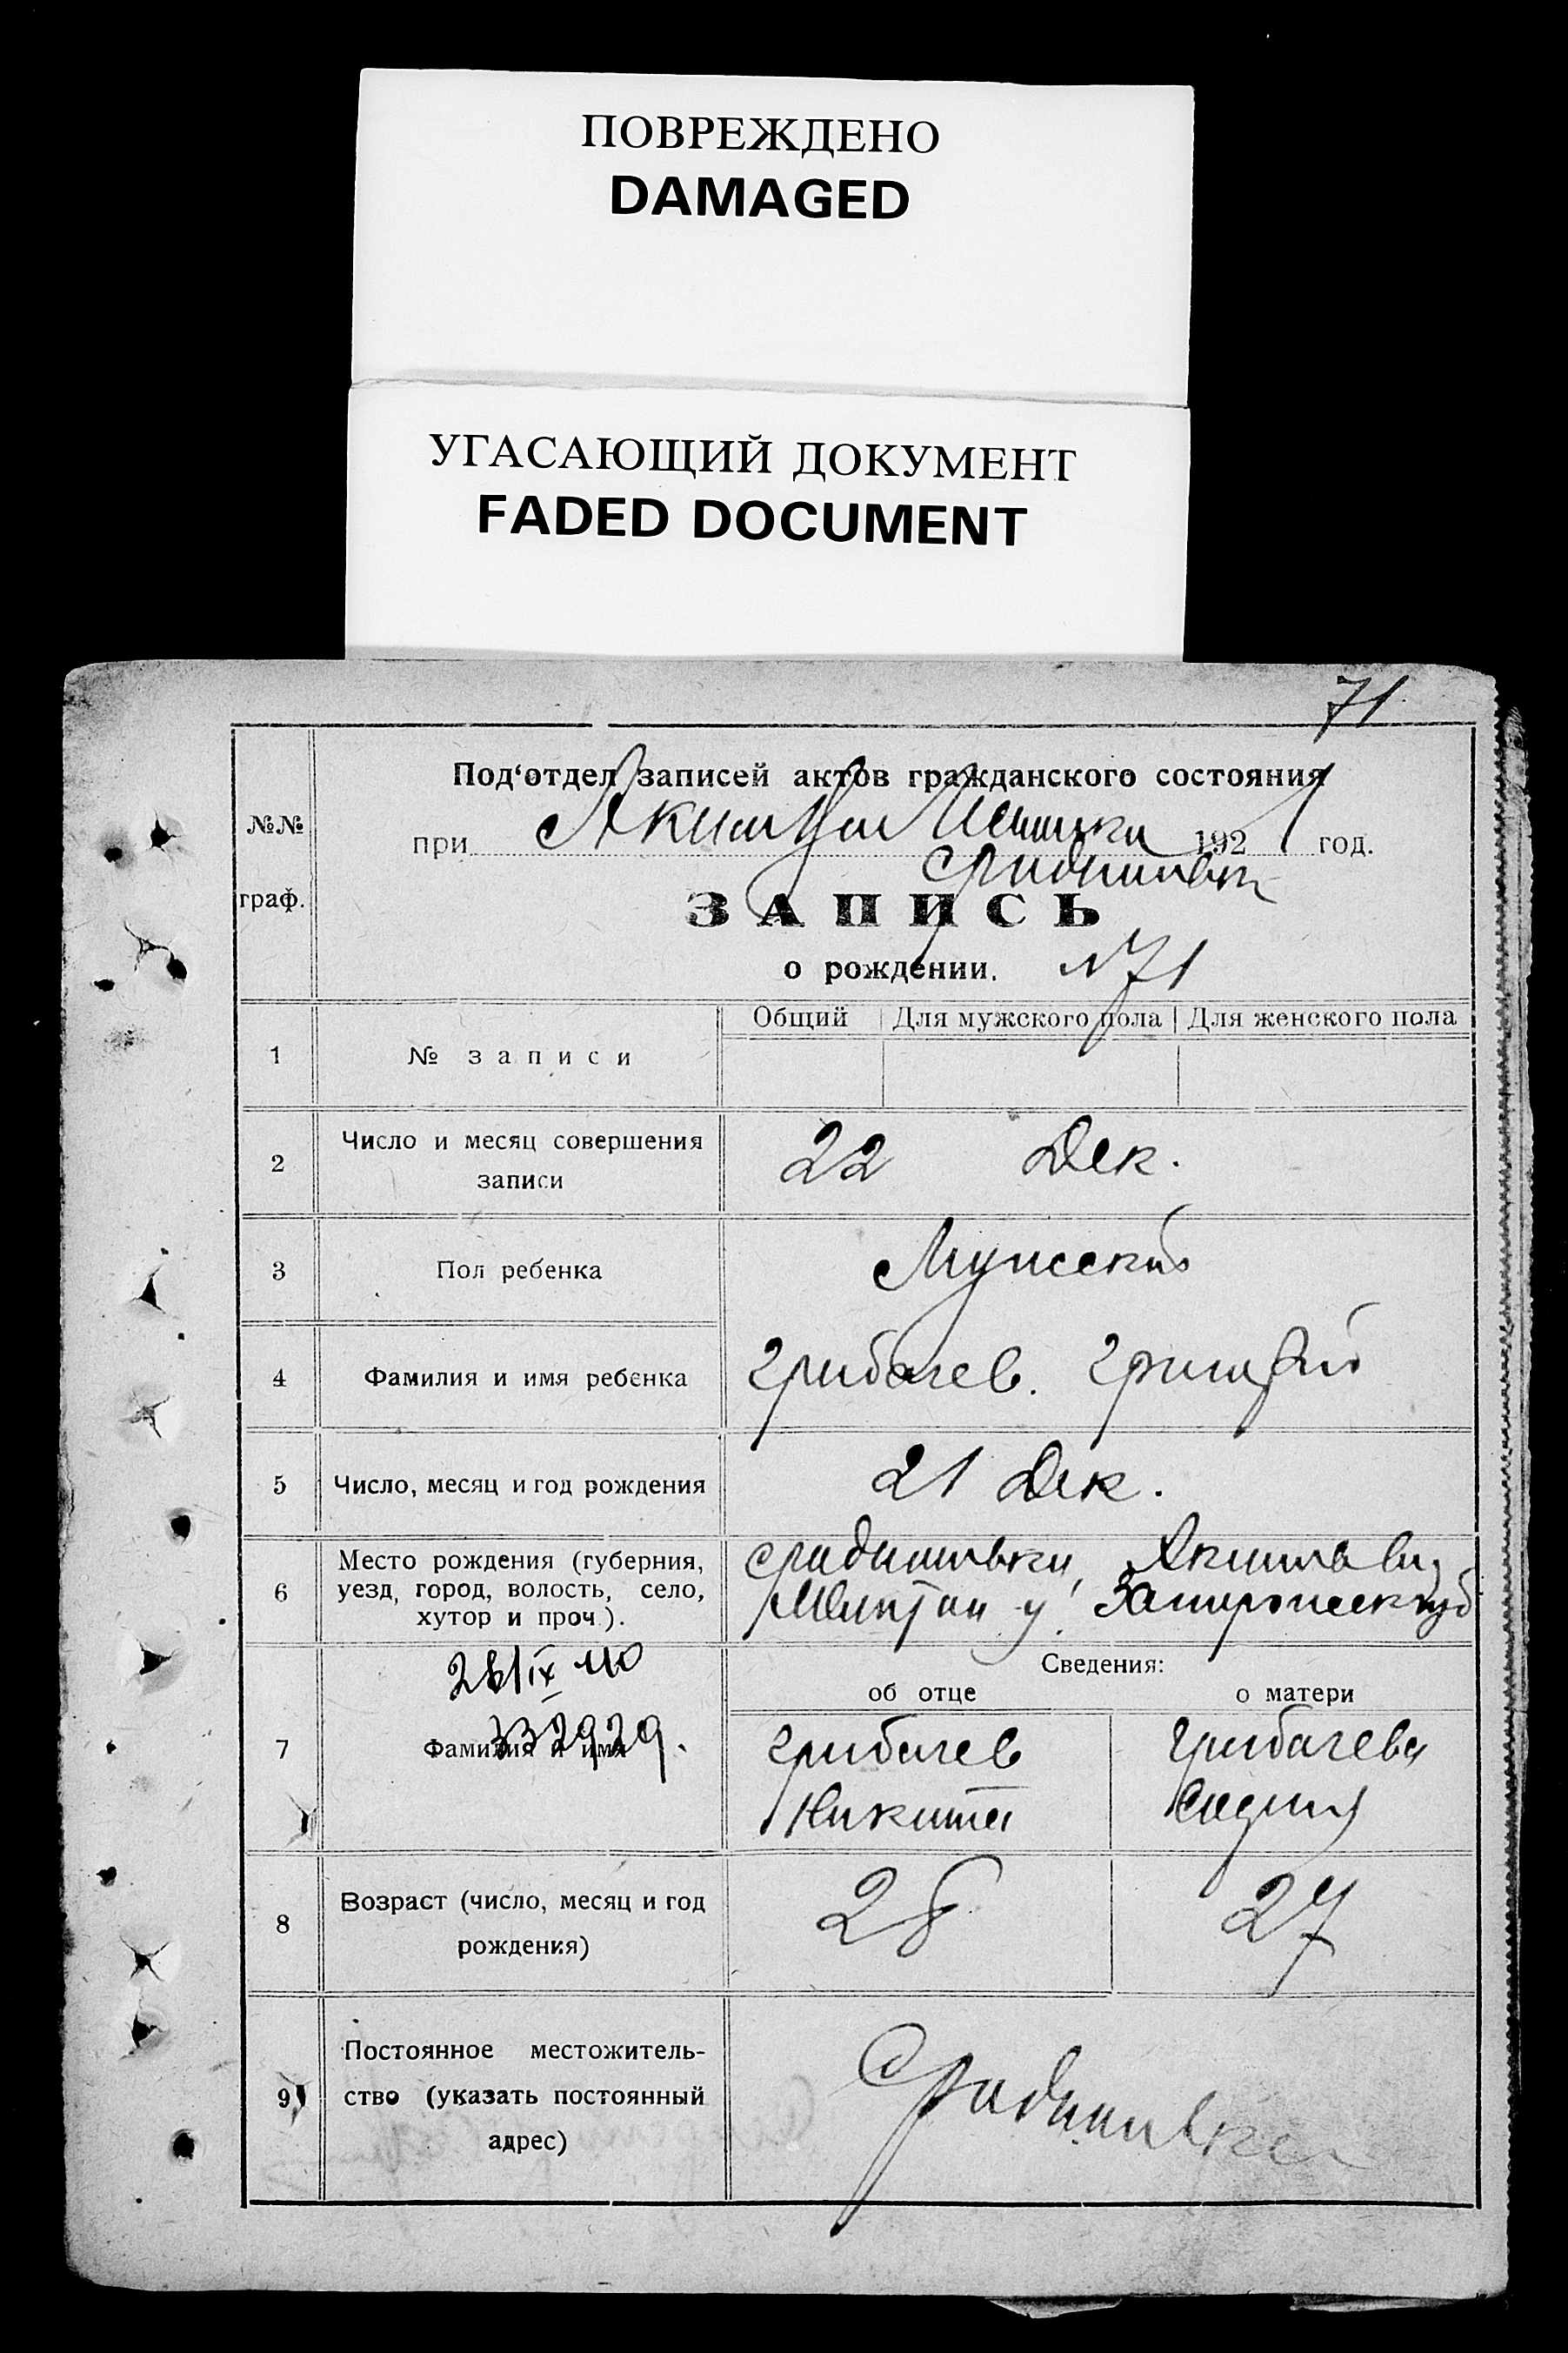 ПОВРЕЖДЕНО
DAMAGED
УГАСАЮЩИЙ ДОКУМЕНТ
FADED DOCUMENT
71
Под‘отдел записей актов гражданского состояния
№№ граф.
при 1921 год.
ЗАПИСЬ
о рождении. N71
Общий Для мужского пола Для женского пола
1 № записи
2 Число и месяц совершения
записи
22 Дек.
3 Пол ребенка
Мужской
4 Фамилия и имя ребенка
Грибачев. Григорий
5 Число, месяц и год рождения
21 Дек.
6 Место рождения (губерния,
уезд, город, волость, село,
хутор и проч.).
28/IX 40
Сведения:
об отце о матери
7 Фамилия и имя
332929.
Грибачев
Никита
Грибачева
8 Возраст (число, месяц и год
рождения)
28 27
9 Постоянное местожитель-
ство (указать постоянный
адрес)